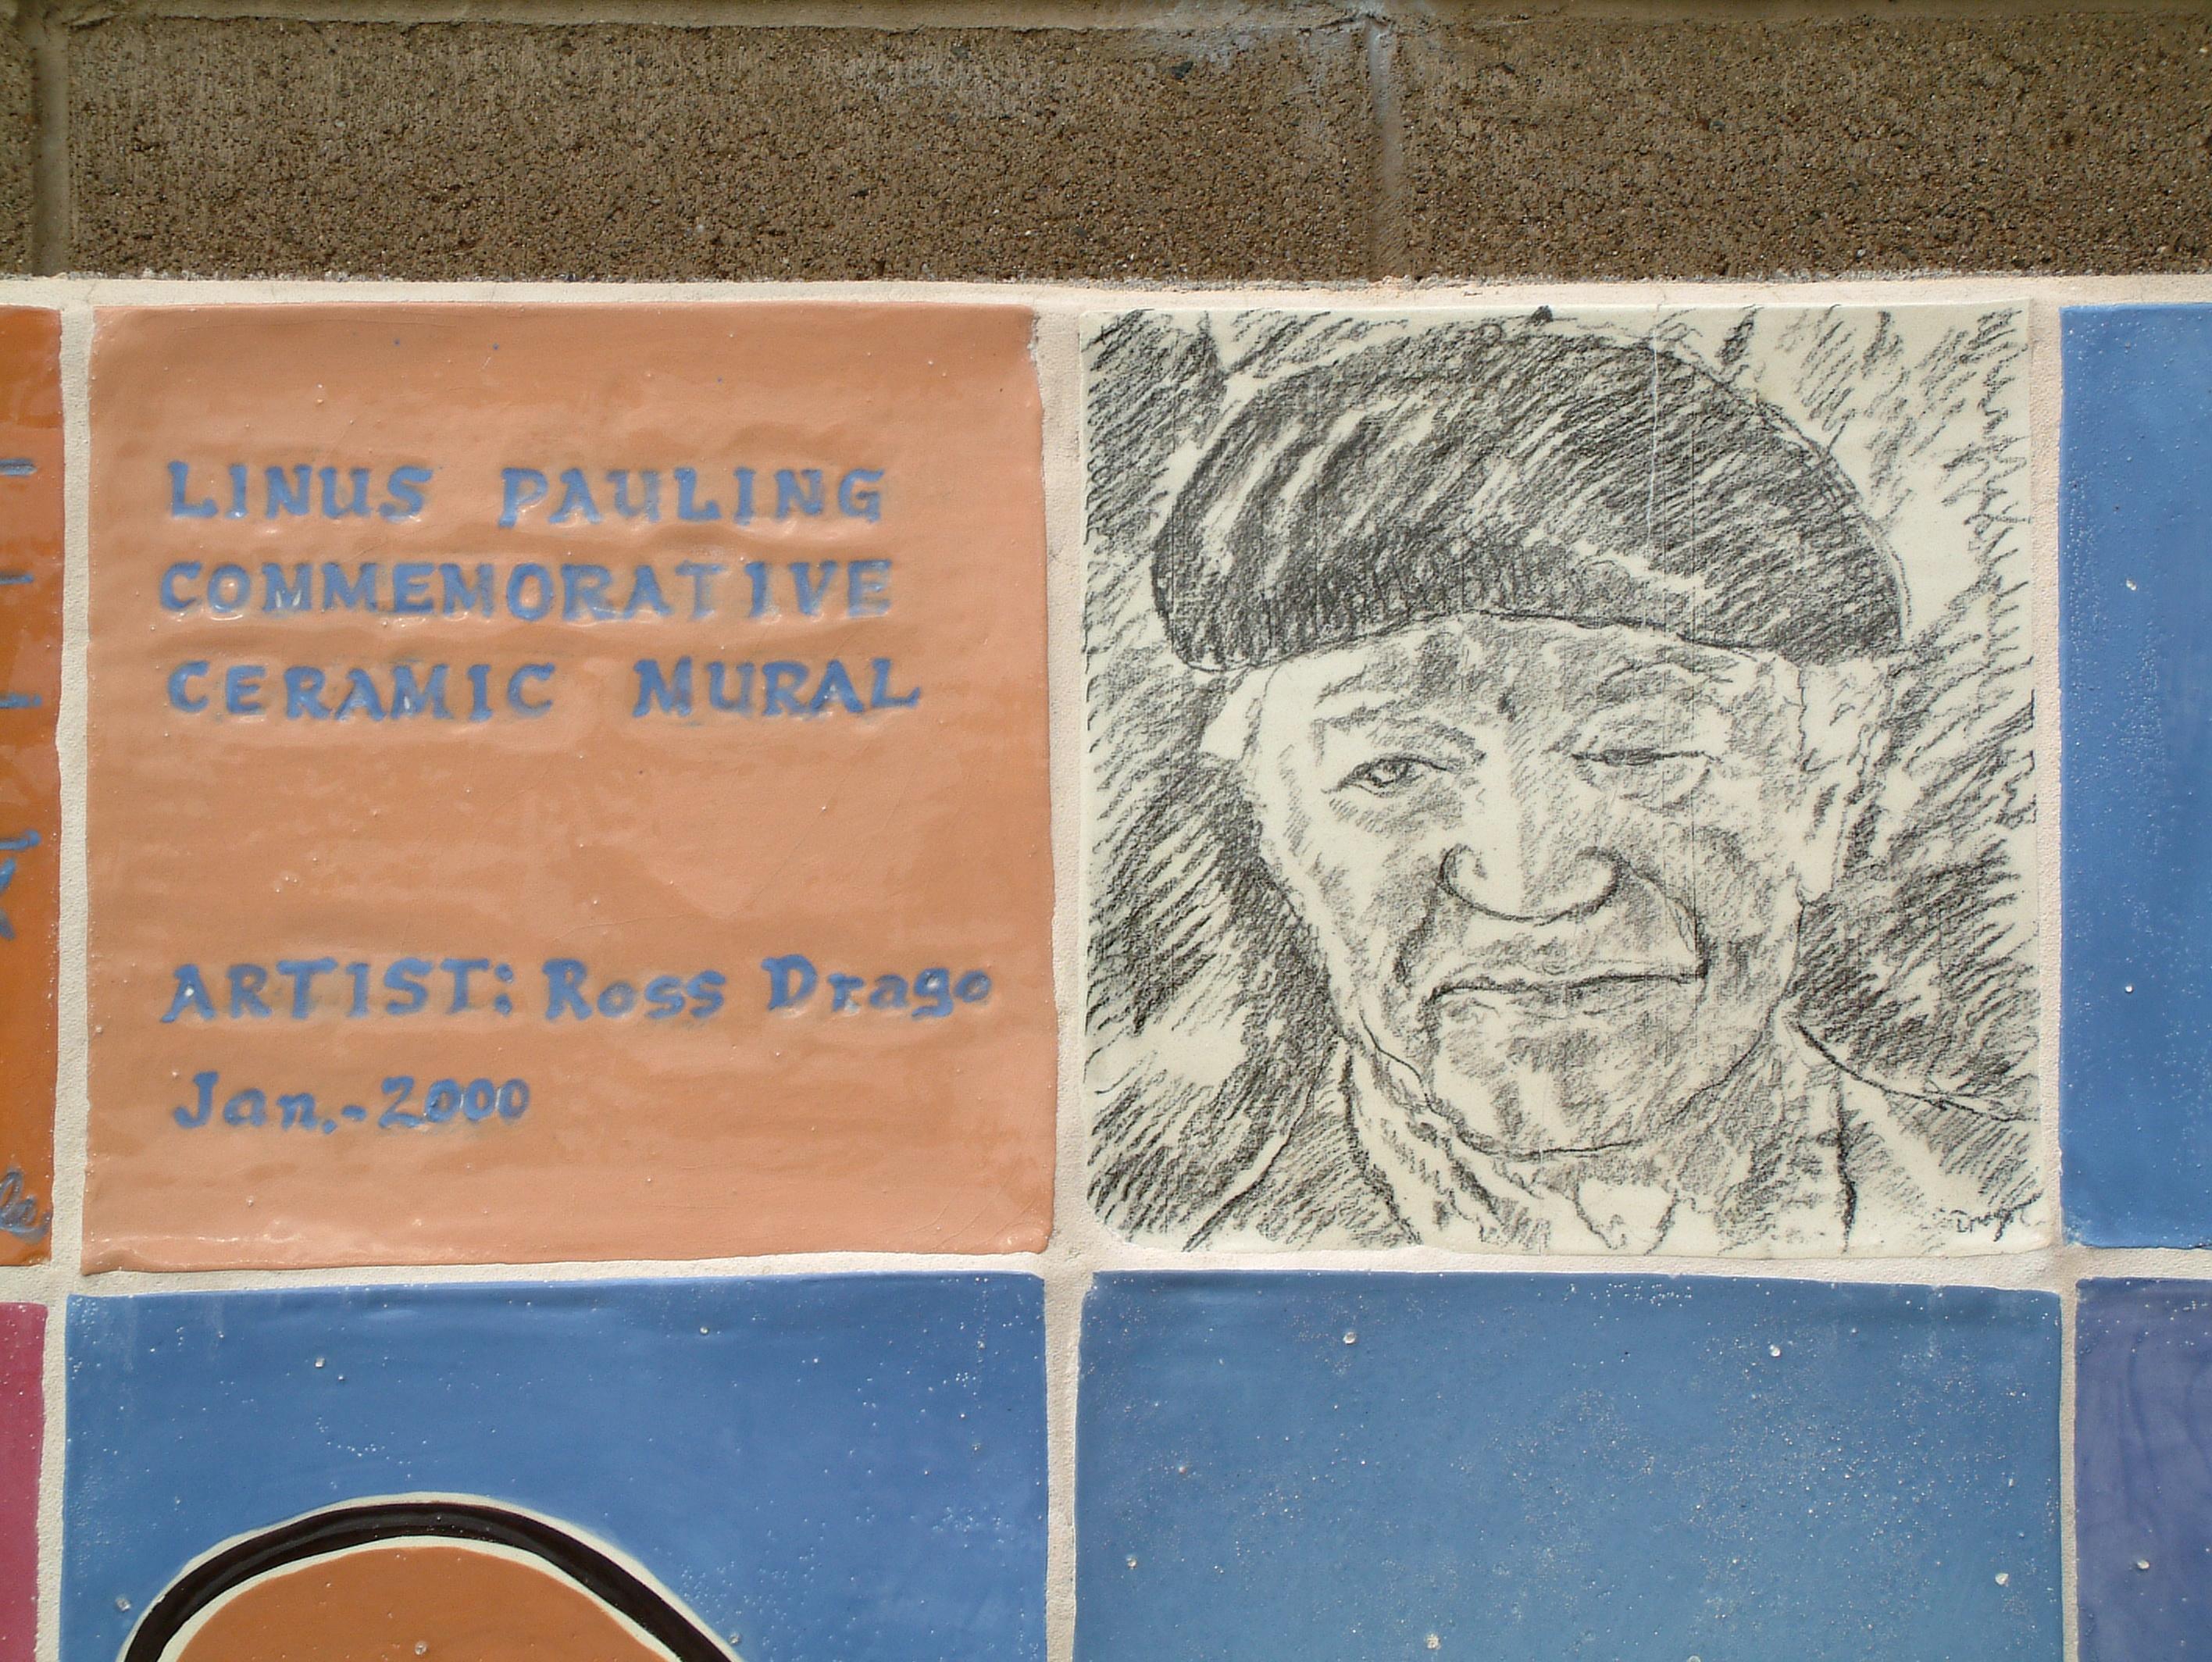 LINUS PAULING
COMMEMORATIVE
CERAMIC MURAL
ARTIST: Ross Drago
Jan.-2000
Drago